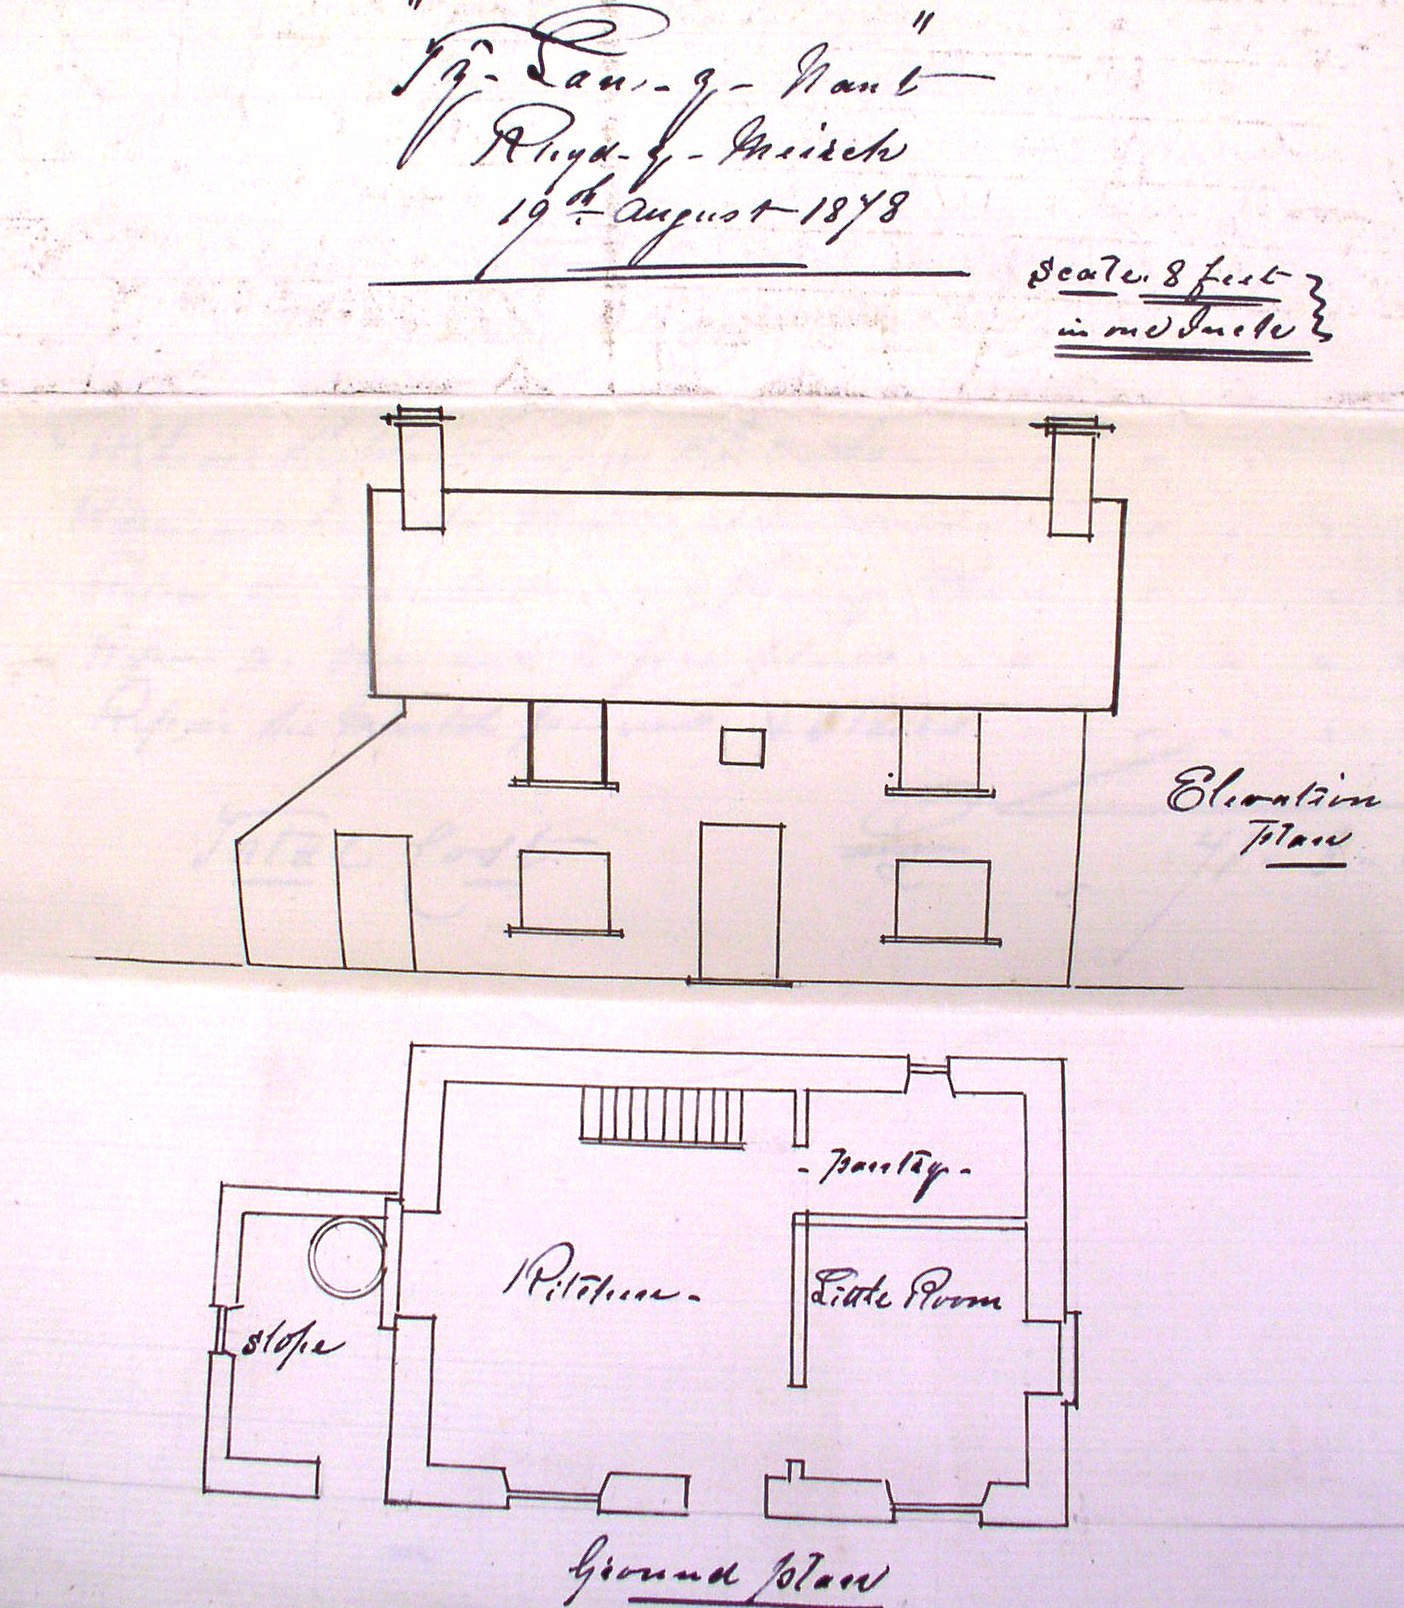 "Tŷ-Lan-y-Nant"
Rhyd-y-Meirch
19th August 1878
Scale 8 feet
in one Inch
Elevation
plan
Total Cost
pantry
Kitchen
Little Room
slope
Ground plan